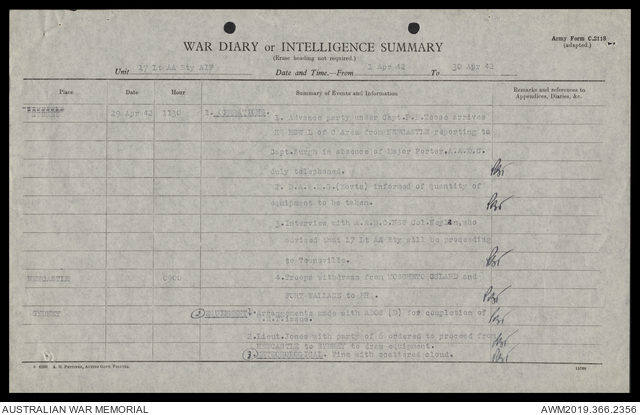 Army Form C.2118
(adapted.)
WAR DIARY or INTELLIGENCE SUMMARY
(Erase heading not required.)
Unit 17 Lt AA Bty AIF Date and Time.—From 1 Apr 42 To 30 Apr 42
Place Date Hour Summary of Events and Information Remarks and references to
Appendices, Diaries, &c.
29 Apr 42 1130 1. OPERATIONS. 1. Advance party under Capt. arrives
HQ NSW L of C Area from NEWCASTLE reporting to
Capt. Burgh in absence of Major Porter, A.A.D.C.
duly telephoned.
2. D.A.Q.M.G. (Movts) informed of quantity of
equipment to be taken.
3. Interview with A.A.D.C. NSW Col. who
advised that 17 Lt AA Bty will be proceeding
to Townsville.
NEWCASTLE 0900 4. Troops withdrawn from MOSCHETO ISLAND and
FORT WALLACE to
SYDNEY 2 EQUIPMENT 1. Arrangements made with (D) for completion of
issue.
2. Lieut. Jones with party of 6 ordered to proceed from
NEWCASTLE to SYDNEY to draw equipment.
3 METEOROLOGICAL. Fine with scattered cloud.
AUSTRALIAN WAR MEMORIAL AWM2019.366.2356